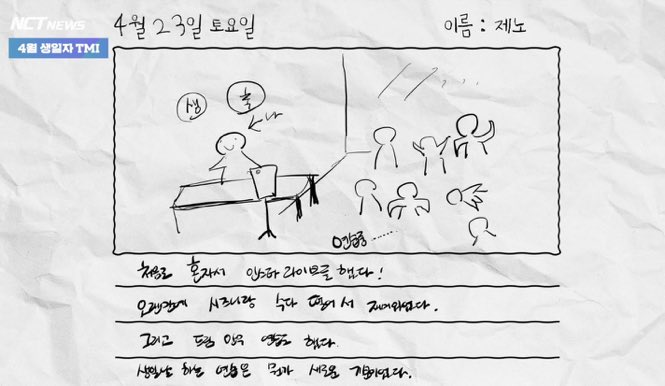 NCT NEWS
4월 생일자 TMI
4월 23일 토요일
이름 : 제노
생
축
나
연습중 ......
처음으로 혼자서 인스타 라이브를 했다!
오랜만에 시즈니랑 수다 떨어서 재미있었다.
그리고 드림 안무 연습도 했다.
생일날 하는 연습은 뭔가 새로운 기분이었다.